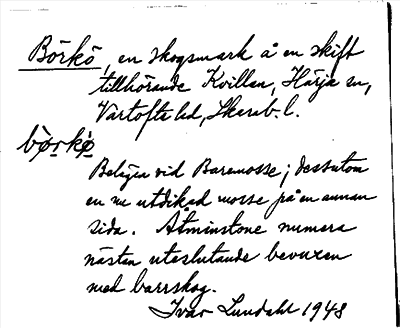 Börkö, en skogsmark å en skift
tillhörande Kvillen, Härja sn,
Vartofta hd, Skarab. l.
bö̀rkö̀
Belägen vid Baremosse; dessutom
en nu utdikad mosse på en annan
sida. Åtminstone numera
nästan uteslutande bevuxen
med barrskog.
Ivar Lundahl 1948